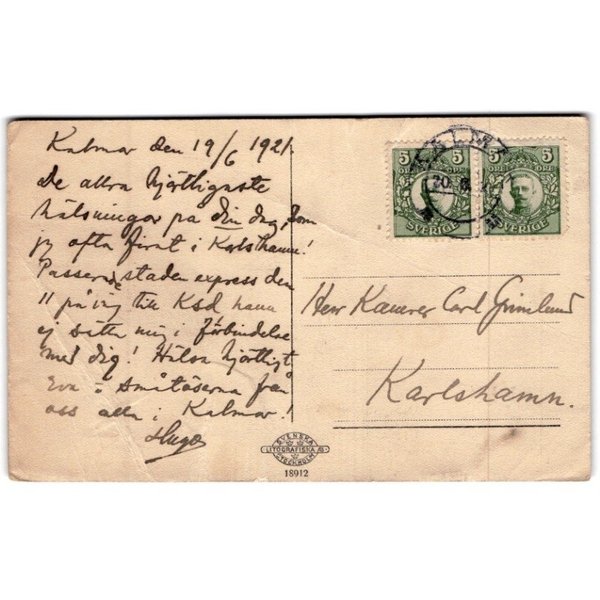 Kalmar den 19/6 1921.
De allra hjärtligaste
hälsningar på din dag, som
jg ofta firat i Karlshamn!
Passera staden express den
11 på väg till Ksd hann
ej sätta mig i förbindelse
med dig! Hälsa hjärtligt
Eva o småtöserna från
oss alla i Kalmar!
Hugo
5 5
ÖRE ÖRE
SVERIGE
5 5
ÖRE ÖRE
SVERIGE
KALMAR
Herr Kamrer Carl Grimlund
Karlshamn.
SVENSKA
LITOGRAFISKA AB
STOCKHOLM
18912